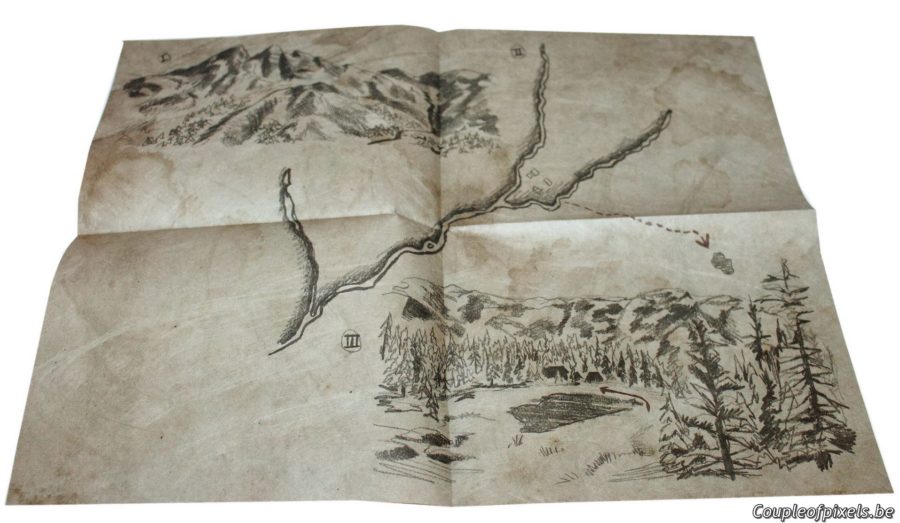 II
III
Coupleofpixels.be